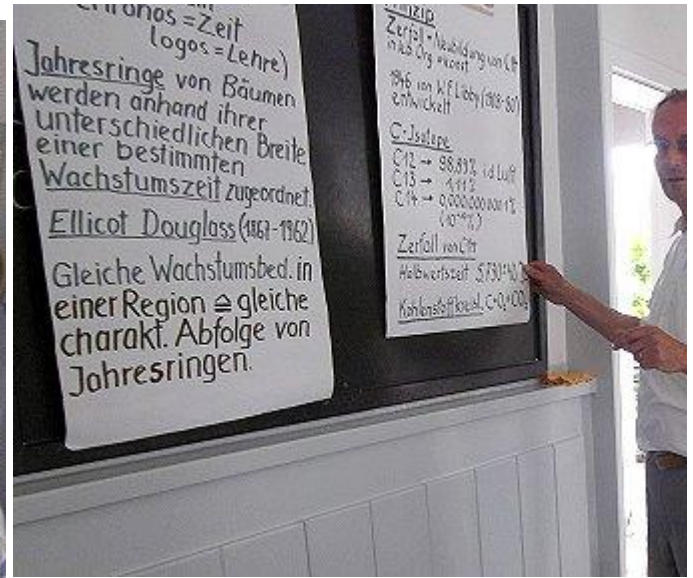 chronos = Zeit
logos = Lehre)
Jahresringe von Bäumen
werden anhand ihrer
unterschiedlichen Breite
einer bestimmten
Wachstumszeit zugeordnet.
Ellicot Douglass (1867-1962)
Gleiche Wachstumsbed. in
einer Region ≙ gleiche
charakt. Abfolge von
Jahresringen.
Prinzip
Zerfall = Neubildung von C14
in leb. Org. = konst
1946 von W.F. Libby (1908-80)
entwickelt
C-Isotope
C12 → 98,89% i.d Luft
C13 → 1,11%
C14 → 0,0000000001%
Zerfall von C14
Halbwertszeit 5730±40
Kohlenstoffkreisl.